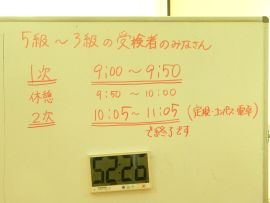 5級〜3級の受検者のみなさん
1次 9:00〜9:50
休憩 9:50〜10:00
2次 10:05〜11:05 (定規・コンパス・電卓)
で終了です
52:26